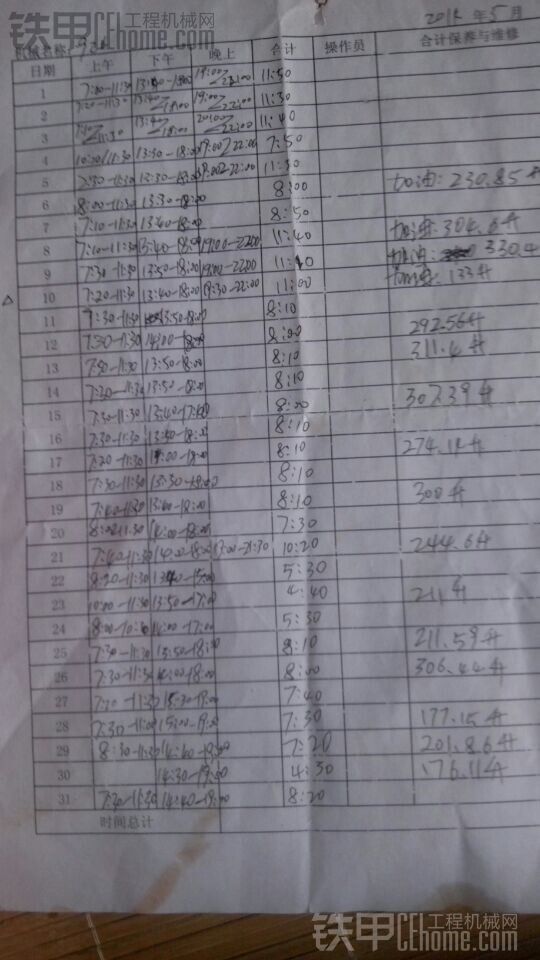 铁甲 工程机械网 CEhome.com
2014年5月
机械名称:
日期 上午 下午 晚上 合计 操作员 合计保养与维修
1 7:00-11:30 19:00-23:00 11:50
2 7:20-11:30 13:40-18:00 19:00-22:00 11:30
3 13:40-18:00 20:00-22:00 11:40
4 10:20-11:30 13:30-18:00 19:00-22:00 7:50
5 13:30-18:00 19:00-22:00 11:30
6 8:00-11:30 13:30-18:00 8:00 加油: 230.85升
7 7:10-11:30 13:40-18:00 8:50
8 7:10-11:30 13:40-18:00 19:00-22:00 11:40 加油: 304.6升
9 7:30-11:30 13:50-18:00 19:00-22:00 11:10 加油: 330.4
10 7:20-11:30 13:40-18:00 19:30-22:00 11:00 加油: 133升
11 7:30-11:30 13:50-18:00 8:10
12 7:30-11:30 14:00-18:00 8:00 292.56升
13 7:30-11:30 13:50-18:00 8:10 311.4升
14 7:30-11:30 13:50-18:00 8:10
15 7:30-11:30 13:40-17:40 8:00 307.39升
16 7:30-11:30 13:50-18:00 8:10
17 7:20-11:30 14:00-18:00 8:10 274.1升
18 7:30-11:30 13:30-18:00 8:10
19 7:40-11:30 13:40-18:00 8:10 300升
20 8:00-11:30 14:00-18:00 7:30
21 7:40-11:30 14:00-18:00 19:00-21:30 10:20 244.6升
22 8:20-11:30 13:40-15:00 5:30
23 10:00-11:30 13:50-17:00 4:40 211升
24 8:00-10:30 14:00-17:00 5:30
25 7:30-11:30 13:50-18:00 8:10 211.59升
26 7:30-11:30 14:00-18:00 8:00 306.44升
27 7:10-11:30 15:30-19:00 7:40
28 7:30-11:00 15:00-19:00 7:30 177.15升
29 8:30-11:30 14:40-19:00 7:20 201.86升
30 14:30-19:00 4:30 176.11升
31 7:30-11:30 14:40-19:00 8:20
时间总计
铁甲 工程机械网 CEhome.com